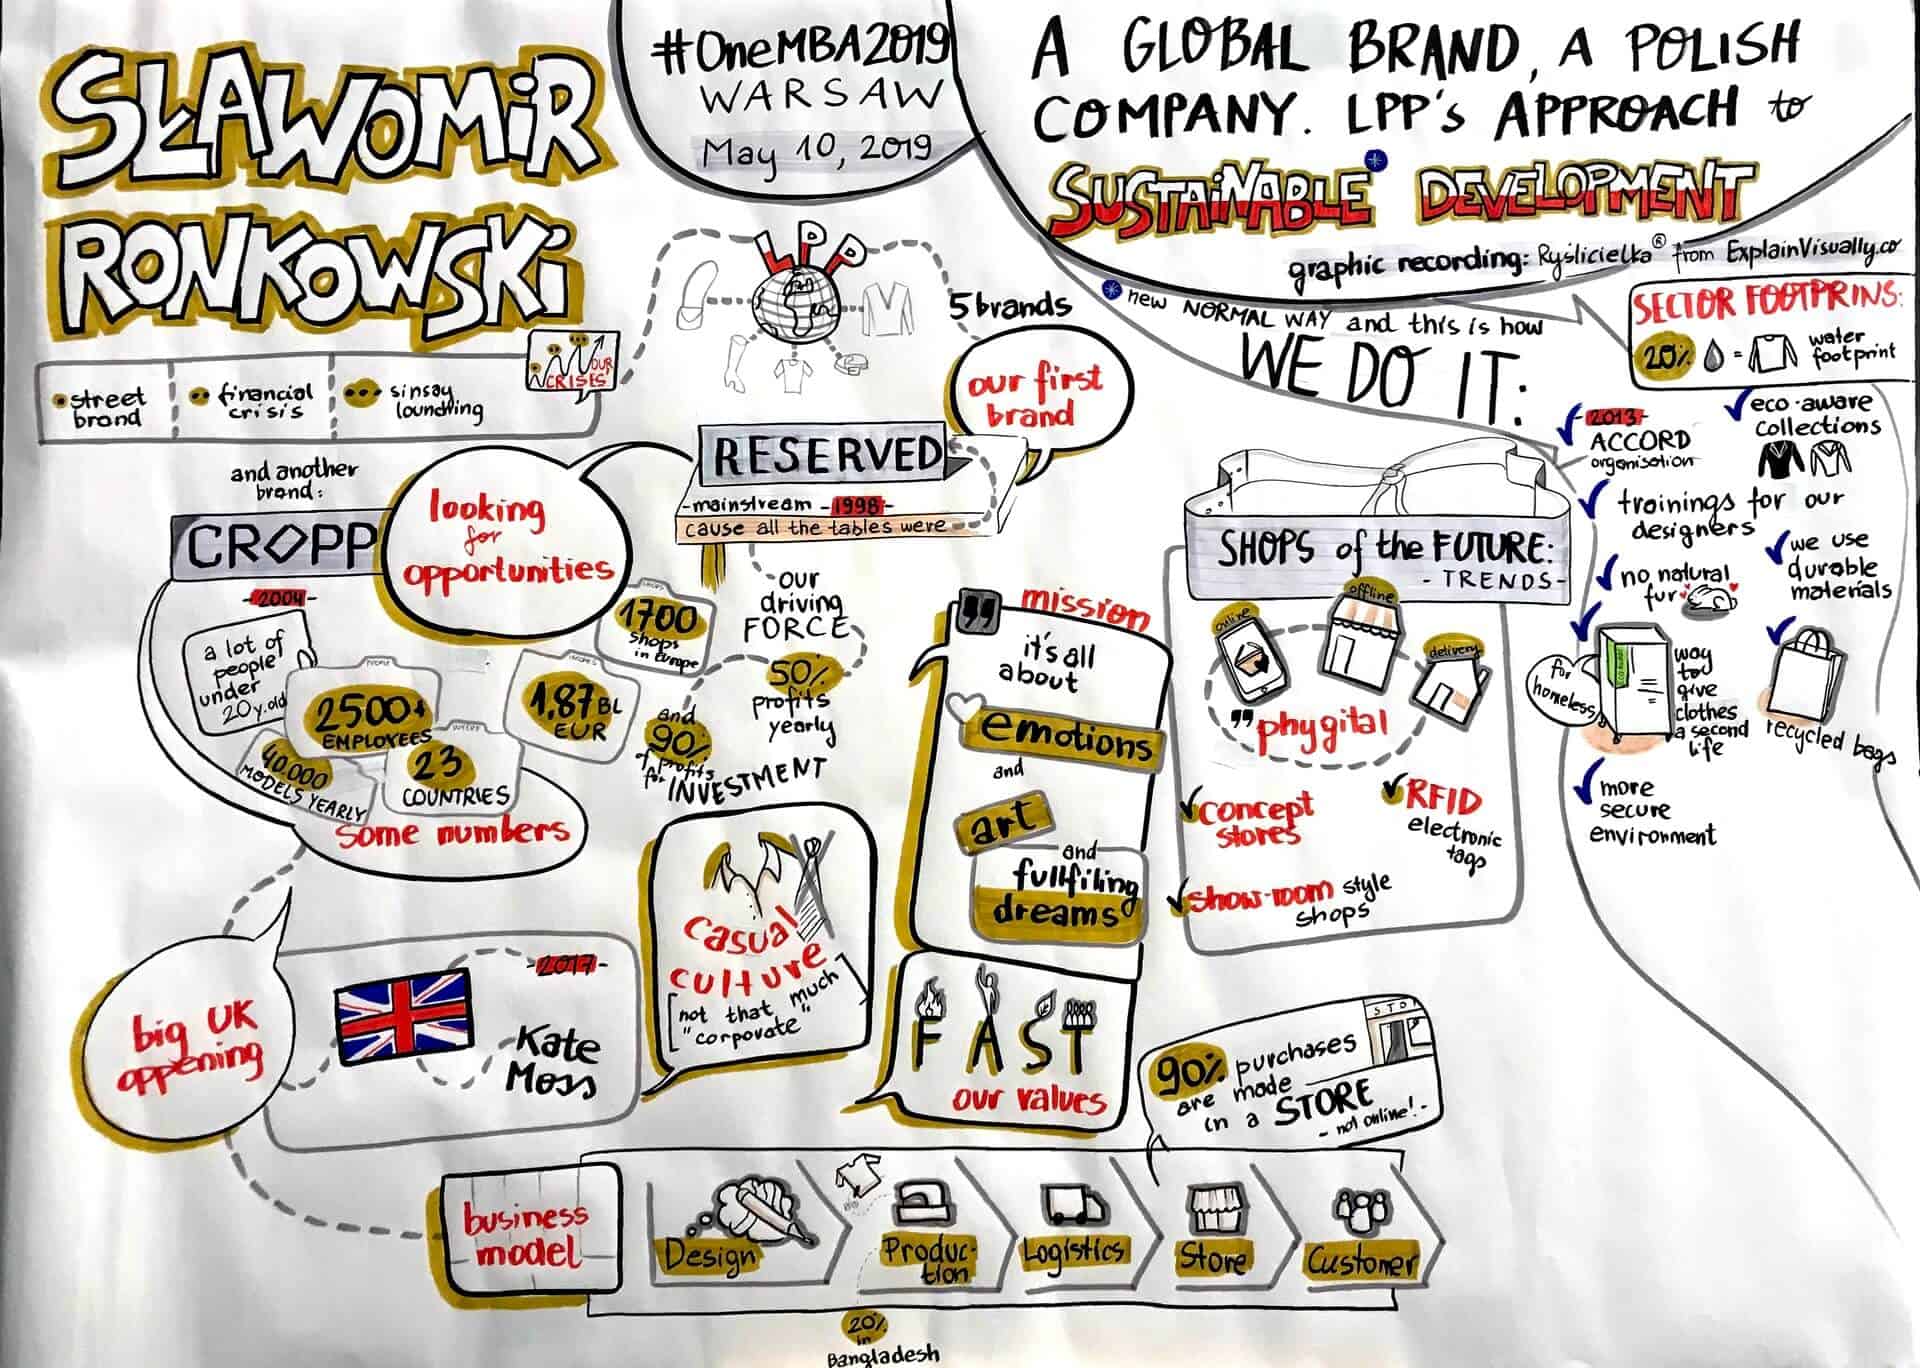 SŁAWOMiR
RONKOWSKi
#OneMBA2019
WARSAW
May 10, 2019
A GLOBAL BRAND, A POLISH
COMPANY. LPP's APPROACH to
SUSTAiNABLE* DEVELOPMENT
graphic recording: Ryślicielka® from ExplainVisually.co
* new NORMAL WAY and this is how
WE DO IT:
SECTOR FOOTPRINS:
20% = water
footprint
LPP
5 brands
street
brand
financial
crisis
sinsay
lounching
OUR
CRISES
our first
brand
RESERVED
-mainstream -1998-
cause all the tables were
and another
brand:
CROPP
-2004-
looking
for
opportunities
a lot of
people
under
20 y.old
2500+
EMPLOYEES
40.000
MODELS YEARLY
23
COUNTRIES
1,87 BL
EUR
1700
shops
in Europe
some numbers
OUR
driving
FORCE
50%
profits
yearly
and
90%
of profits
for INVESTMENT
mission
it's all
about
emotions
and
art
and
fullfiling
dreams
SHOPS of the FUTURE:
- TRENDS -
online
offline
delivery
"phygital
concept
stores
RFID
electronic
tags
show-room style
shops
2013
ACCORD
organisation
eco-aware
collections
trainings for our
designers
no natural
fur
we use
durable
materials
for
homeless
way
to
give
clothes
a second
life
recycled bags
more
secure
environment
big UK
oppening
-2017-
Kate
Moss
casual
culture
[not that much
"corporate"]
FAST
our values
90% purchases
are made
in a STORE
- not online! -
STO
business
model
Design
Produc-
tion
Logistics
Store
Customer
20%
in
Bangladesh